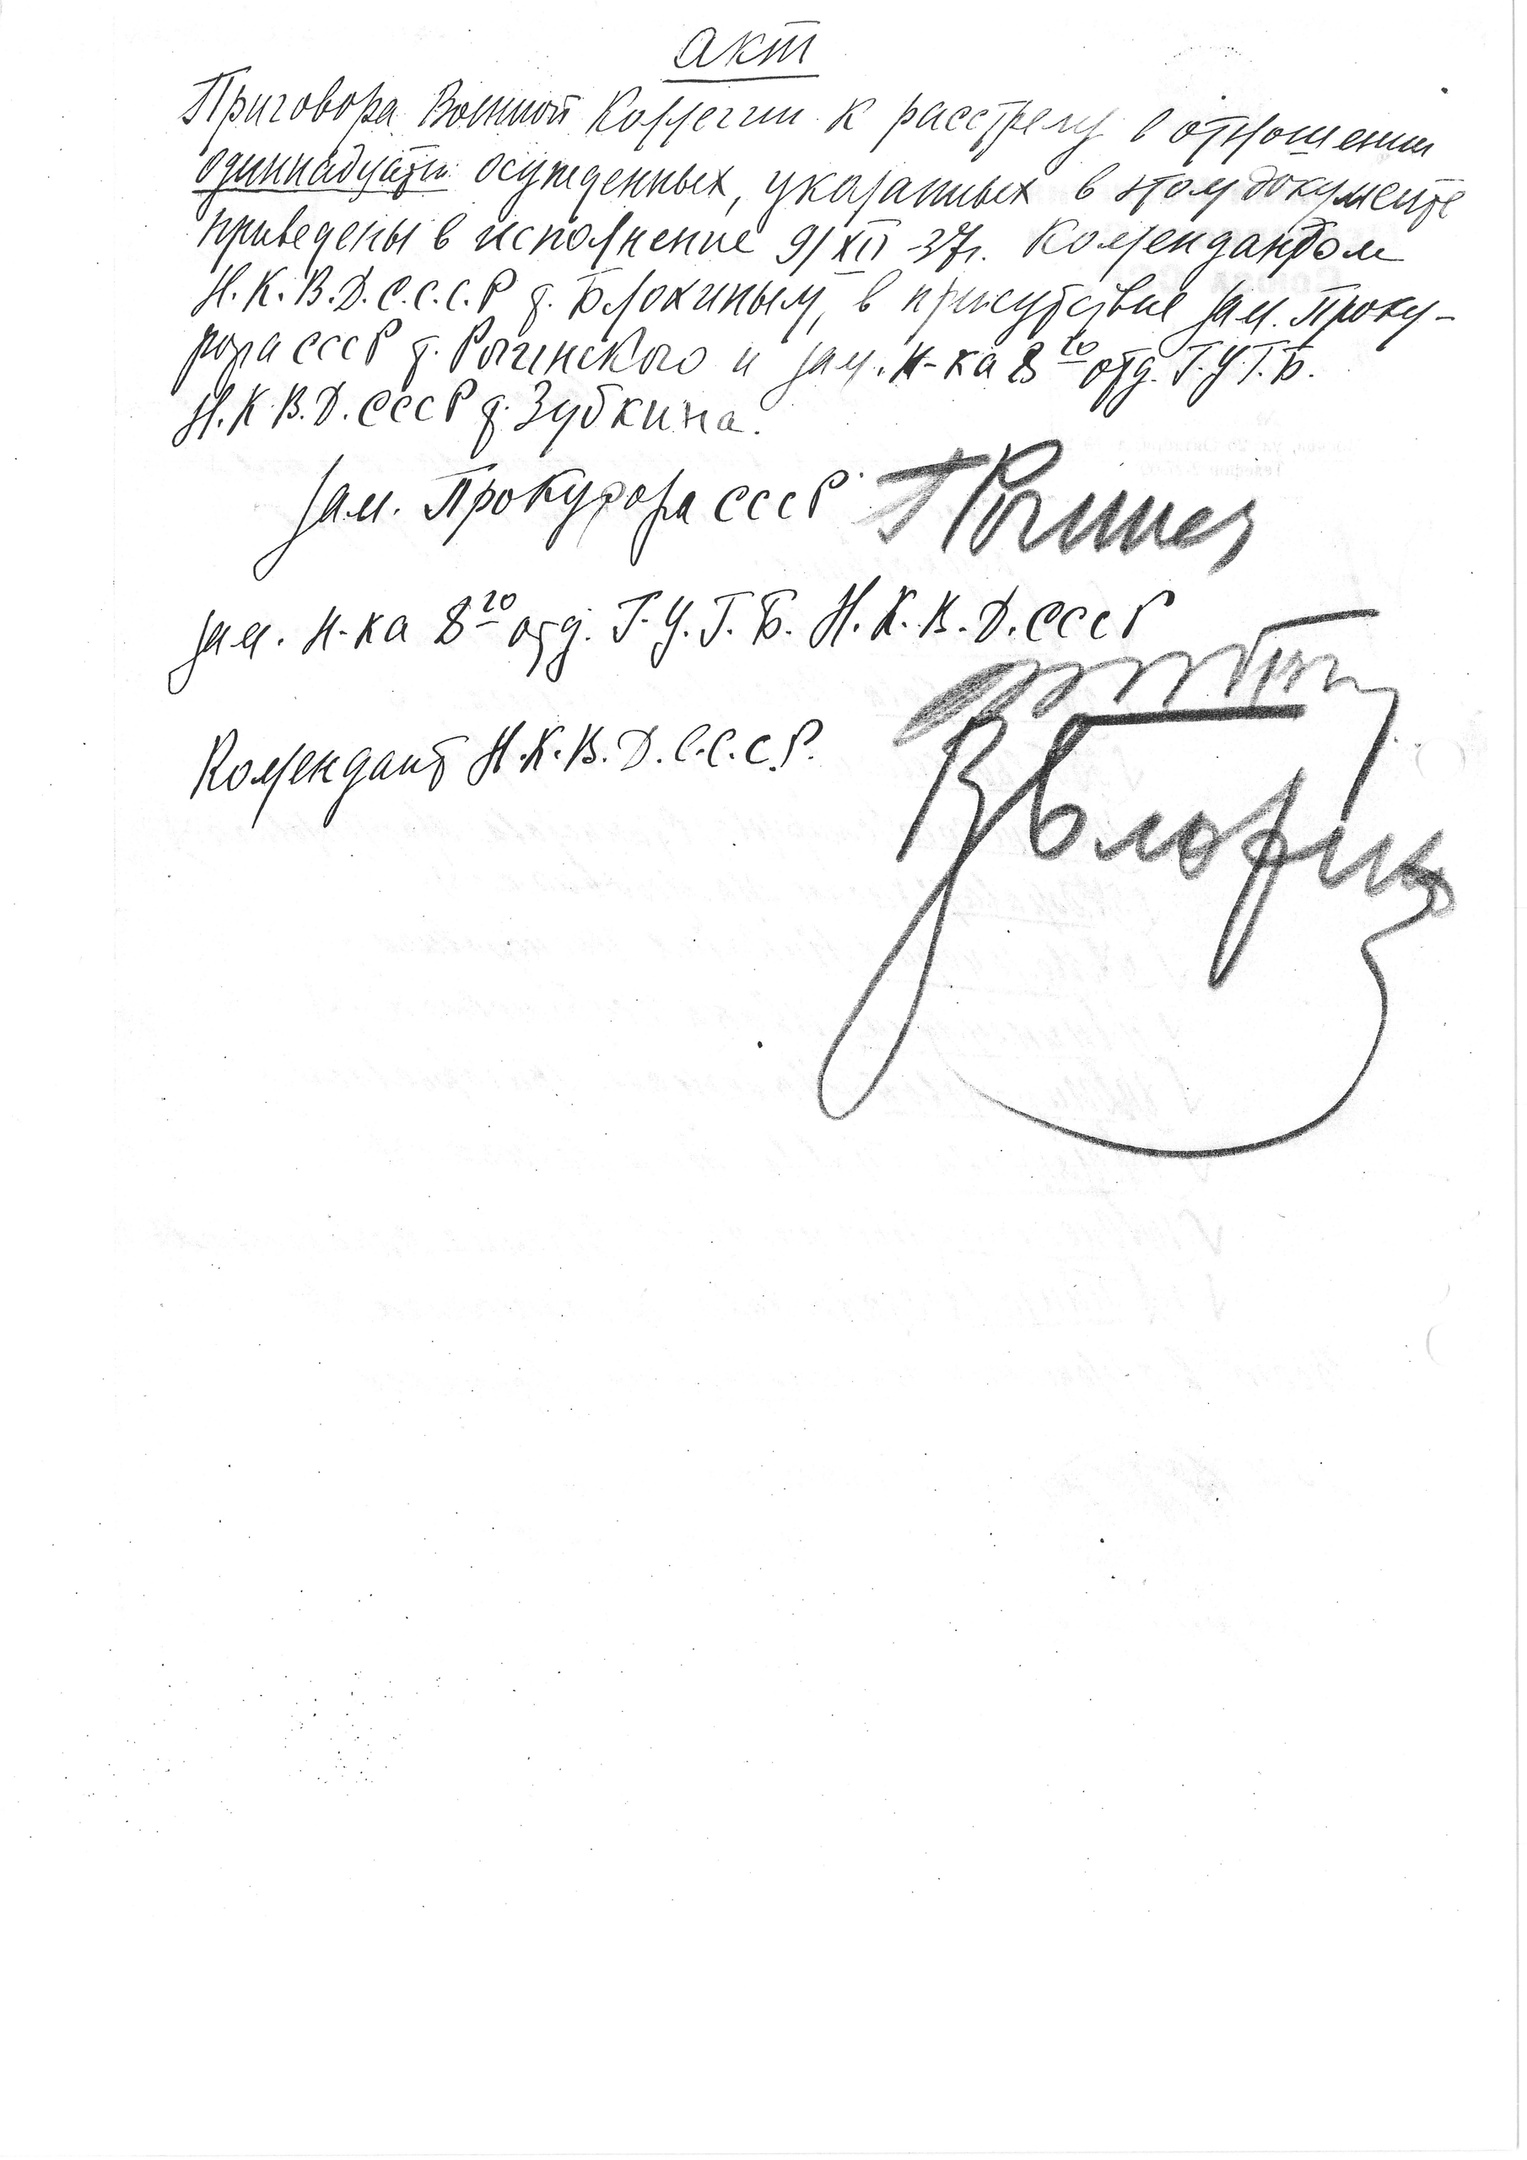 акт
Приговора Военной Коллегии к расстрелу в отношении
одиннадцати осужденных, указанных в этом документе
приведены в исполнение 9/XII-37г. Комендантом
Н.К.В.Д.С.С.С.Р т. Блохиным, в присутствие зам. Проку-
рора СССР т. Рогинского и зам. н-ка 8го отд. Г.У.Г.Б.
Н.К.В.Д. СССР т. Зубкина.
зам. Прокурора СССР
зам. н-ка 8го отд. Г.У.Г.Б. Н.К.В.Д. СССР
Комендант Н.К.В.Д.С.С.С.Р.
В Блохин